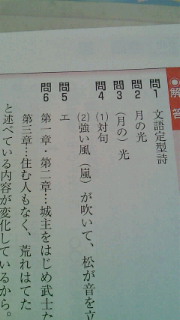 解答
問1 文語定型詩
問2 月の光
問3 (月の)光
問4 (1)対句
(2)強い風(嵐)が吹いて、松が音を立
問5 エ
問6 第一章・第二章…城主をはじめ武士た
第三章…住む人もなく、荒れはてた
と述べている内容が変化しているから。